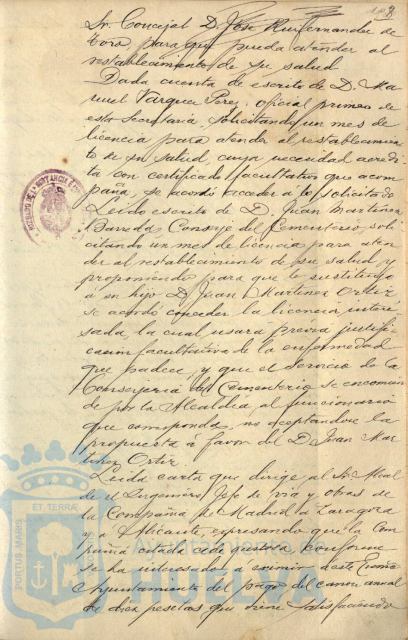 Sr. Concejal D. José Ruifernandez de
Toro para que pueda atender al
restablecimiento de su salud
Dada cuenta de escrito de D. Ma-
nuel Vazquez Perez, oficial primero de
esta Secretaria, solicitando un mes de
licencia para atender al restablecimien-
to de su salud, cuya necesidad acredi-
ta con certificado facultativo que acom-
paña, se acordó acceder a lo solicitado
Leido escrito de D. Juan Martinez
Barreda, Conserje del Cementerio, soli-
citando un mes de licencia para aten-
der al restablecimiento de su salud y
proponiendo para que le sustituya
a su hijo D. Juan Martinez Ortiz
se acordó conceder la licencia intere-
sada la cual usará previa justifi-
cacion facultativa de la enfermedad
que padece, y que el servicio de la
Conserjeria del Cementerio se encomien-
de por la Alcaldía al funcionario
que corresponda, no aceptandose la
propuesta a favor del D. Juan Mar-
tinez Ortiz.
Leida carta que dirige al Sr. Alcal-
de el Ingeniero Jefe de via y obras de
la Compañia de Madrid a Zaragoza
y a Alicante expresando que la Com-
pañia citada accede gustosa conforme
se ha interesado a eximir a este Excmo
Ayuntamiento del pago del canon anual
de diez pesetas que viene satisfaciendo
PORTUS MARIS
ET TERRÆ
Ayuntamiento de
HUELVA